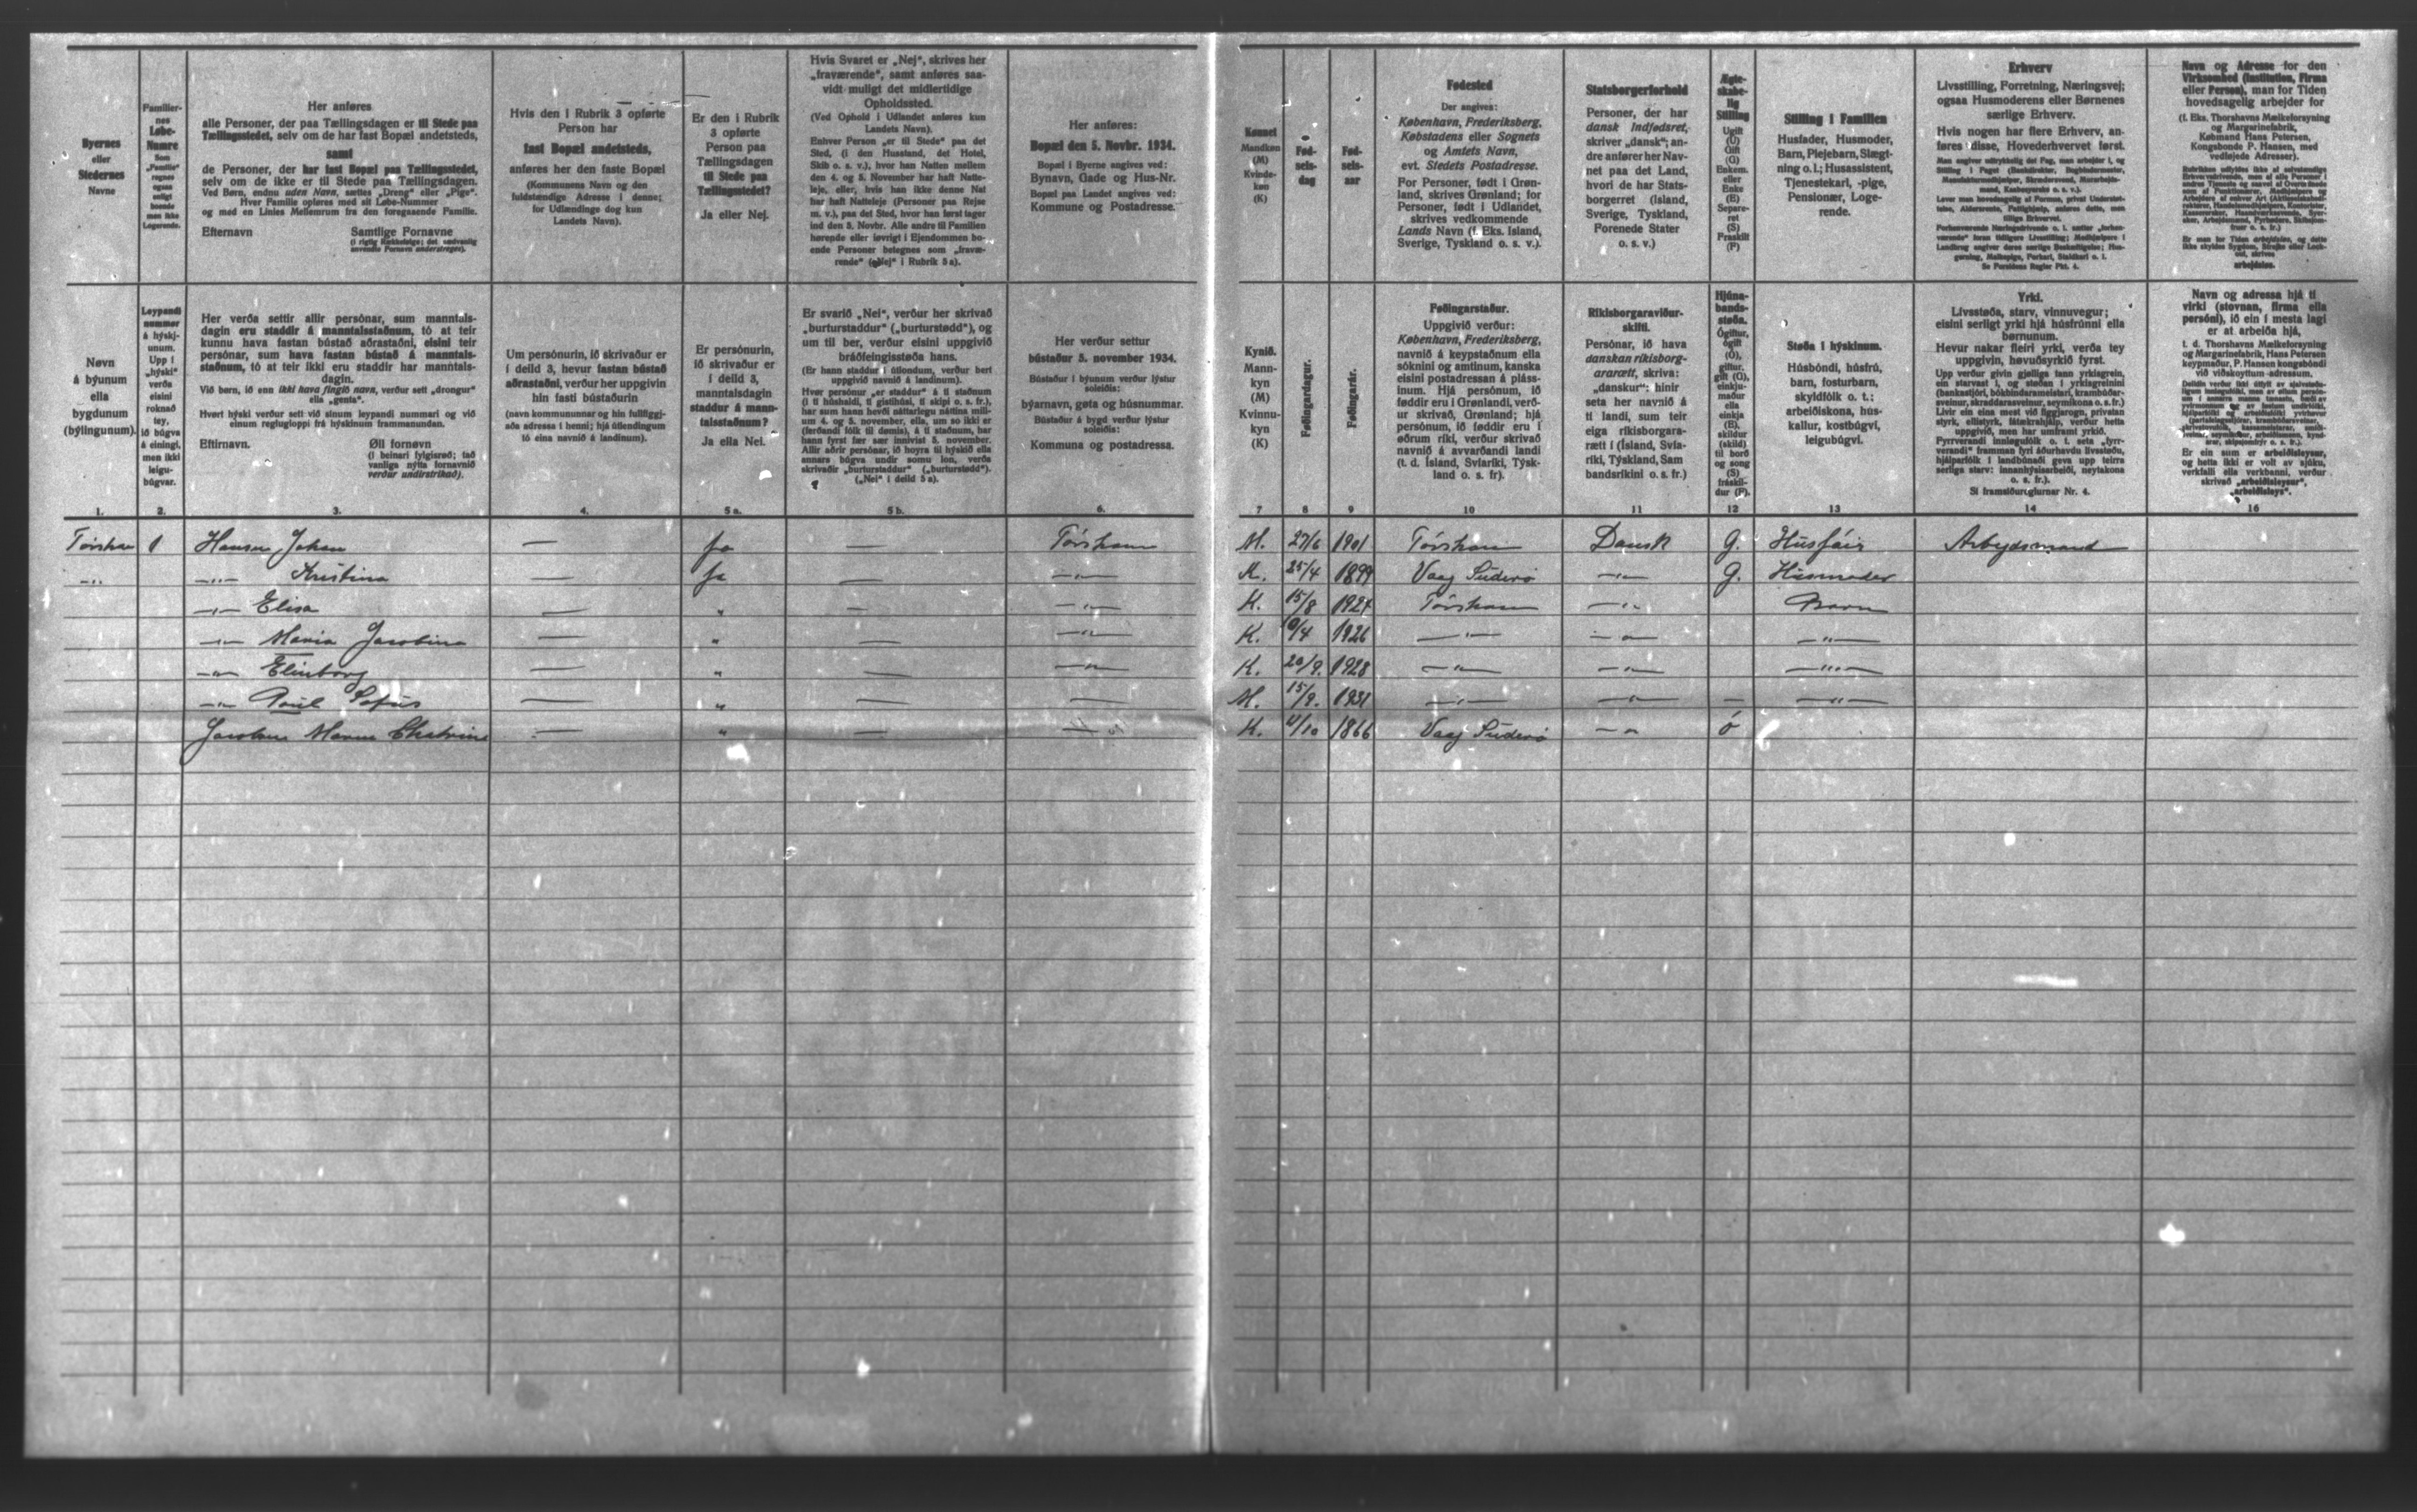 Byernes
eller
Stedernes
Navne
Familier-
nes
Løbe-
Numre
Som
„Familie“
regnes
ogsaa
enligt
boende
men ikke
Logerende.
Her anføres
alle Personer, der paa Tællingsdagen er til Stede paa
Tællingsstedet, selv om de har fast Bopæl andetsteds,
samt
de Personer, der har fast Bopæl paa Tællingsstedet,
selv om de ikke er til Stede paa Tællingsdagen.
Ved Børn, endnu uden Navn, sættes „Dreng“ eller „Pige“.
Hver Familie opføres med sit Løbe-Nummer
og med en Linies Mellemrum fra den foregaaende Familie.
Efternavn Samtlige Fornavne
(i rigtig Rækkefølge; det sædvanlig
anvendte Fornavn understreges).
Hvis den i Rubrik 3 opførte
Person har
fast Bopæl andetsteds,
anføres her den faste Bopæl
(Kommunens Navn og den
fuldstændige Adresse i denne;
for Udlændinge dog kun
Landets Navn).
Er den i Rubrik
3 opførte
Person paa
Tællingsdagen
til Stede paa
Tællingsstedet?
Ja eller Nej.
Hvis Svaret er „Nej“, skrives her
„fraværende“, samt anføres saa-
vidt muligt det midlertidige
Opholdssted.
(Ved Ophold i Udlandet anføres kun
Landets Navn).
Enhver Person „er til Stede“ paa det
Sted, (i den Husstand, det Hotel,
Skib o. s. v.), hvor han Natten mellem
den 4. og 5. November har haft Natte-
leje, eller, hvis han ikke denne Nat
har haft Natteleje (Personer paa Rejse
m. v.), paa det Sted, hvor han først tager
ind den 5. Novbr. Alle andre til Familien
hørende eller iøvrigt i Ejendommen bo-
ende Personer betegnes som „fravæ-
rende“ („Nej“ i Rubrik 5 a).
Her anføres:
Bopæl den 5. Novbr. 1934.
Bopæl i Byerne angives ved:
Bynavn, Gade og Hus-Nr.
Bopæl paa Landet angives ved:
Kommune og Postadresse.
Kønnet
Mandkøn
(M)
Kvinde-
køn
(K)
Fød-
sels-
dag
Fød-
sels-
aar
Fødested
Der angives:
København, Frederiksberg,
Købstadens eller Sognets
og Amtets Navn,
evt. Stedets Postadresse.
For Personer, født i Grøn-
land, skrives Grønland; for
Personer, født i Udlandet,
skrives vedkommende
Lands Navn (f. Eks. Island,
Sverige, Tyskland o. s. v.).
Statsborgerforhold
Personer, der har
dansk Indfødsret,
skriver „dansk“; an-
dre anfører her Nav-
net paa det Land,
hvori de har Stats-
borgerret (Island,
Sverige, Tyskland,
Forenede Stater
o. s. v.)
Ægte-
skabe-
lig
Stilling
Ugift
(U)
Gift
(G)
Enkem.
eller
Enke
(E)
Separe-
ret
(S)
Fraskilt
(F)
Stilling i Familien
Husfader, Husmoder,
Barn, Plejebarn, Slægt-
ning o. l.; Husassistent,
Tjenestekarl, -pige,
Pensionær, Loge-
rende.
Erhverv
Livsstilling, Forretning, Næringsvej;
ogsaa Husmoderens eller Børnenes
særlige Erhverv.
Hvis nogen har flere Erhverv, an-
føres disse, Hovederhvervet først.
Navn og Adresse for den
Virksomhed (Institution, Firma
eller Person), man for Tiden
hovedsagelig arbejder for
(f. Eks. Thorshavns Mælkeforsyning
og Margarinefabrik,
Købmand Hans Petersen,
Kongsbonde P. Hansen, med
vedføjede Adresser).
Nøvn
á býunum
ella
bygdunum
(býlingunum).
Leypandi
nummer
á hýskj-
unum.
Upp í
„hýski“
verða
eisini
roknað
tey,
ið búgva
á einingi,
men ikki
leigu-
búgvar.
Her verða settir allir persónar, sum manntals-
dagin eru staddir á manntalsstaðnum, tó at teir
kunnu hava fastan bústað aðrastaðni, eisini teir
persónar, sum hava fastan bústað á manntals-
staðnum, tó at teir ikki eru staddir har manntals-
dagin.
Við børn, ið enn ikki hava fingið navn, verður sett „drongur“
ella „genta“.
Hvørt hýski verður sett við sínum leypandi nummari og við
einum reglugloppi frá hýskinum frammanundan.
Eftirnavn. Øll fornøvn
(í beinari fylgisrøð; tað
vanliga nýtta fornavnið
verður undirstrikað).
Um persónurin, ið skrivaður er
í deild 3, hevur fastan bústað
aðrastaðni, verður her uppgivin
hin fasti bústaðurin
(navn kommununnar og hin fullfíggj-
aða adressa í henni; hjá útlendingum
tó eina navnið á landinum).
Er persónurin,
ið skrivaður er
í deild 3,
manntalsdagin
staddur á mann-
talsstaðnum?
Ja ella Nei.
Er svarið „Nei“, verður her skrivað
„burturstaddur“ („burturstødd“), og
um til ber, verður eisini uppgivið
bráðfeingisstøða hans.
(Er hann staddur í útlondum, verður bert
uppgivið navnið á landinum).
Her verður settur
bústaður 5. november 1934.
Bústaður í býunum verður lýstur
soleiðis:
býarnavn, gøta og húsnummar.
Bústaður á bygd verður lýstur
soleiðis:
Kommuna og postadressa.
Kynið.
Mann-
kyn
(M)
Kvinnu-
kyn
(K)
Føðingardagur.
Føðingarár.
Føðingarstaður.
Uppgivið verður:
København, Frederiksberg,
navnið á keypstaðnum ella
sóknini og amtinum, kanska
eisini postadressan á pláss-
inum. Hjá persónum, ið
føddir eru í Grønlandi, verð-
ur skrivað, Grønland; hjá
persónum, ið føddir eru í
øðrum ríki, verður skrivað
navnið á avvarðandi landi
(t. d. Ísland, Svíaríki, Týsk-
land o. s. fr).
Ríkisborgaraviður-
skifti.
Persónar, ið hava
danskan ríkisborg-
ararætt, skriva:
„danskur“: hinir
seta her navnið á
tí landi, sum teir
eiga ríkisborgara-
rætt í (Ísland, Svía-
ríki, Týskland, Sam
bandsríkini o. s. fr.)
Hjúna-
bands-
støða.
Ógiftur,
ógift
(Ó),
giftur,
gift (G),
einkju-
maður
ella
einkja
(E),
skildur
(skild)
til borð
og song
(S)
fráskil-
dur (F).
Støða í hýskinum.
Húsbóndi, húsfrú,
barn, fosturbarn,
skyldfólk o. t.;
arbeiðiskona, hús-
kallur, kostbúgvi,
leigubúgvi.
Yrki.
Livsstøða, starv, vinnuvegur;
eisini serligt yrki hjá húsfrúnni ella
børnunum.
Hevur nakar fleiri yrki, verða tey
uppgivin, høvuðsyrkið fyrst.
Sí framsíðureglurnar Nr. 4.
Navn og adressa hjá tí
virki (stovnan, firma ella
persóni), ið ein í mesta lagi
er at arbeiða hjá,
t. d. Thorshavns Mælkeforsyning
og Margarinefabrik, Hans Petersen
keypmaður, P. Hansen kongsbóndi
við viðskoyttum adressum.
Er ein sum er arbeiðsleysur,
og hetta ikki er volt av sjúku,
verkfalli ella verkbanni, verður
skrivað „arbeiðisleysur“,
„arbeiðisleys“.
1. 2. 3. 4. 5 a. 5 b. 6. 7 8 9 10 11 12 13 14 16
1 Hansen Johan — Ja — Tórshavn M. 27/6 1901 Tórshavn Dansk G. Húsfáir Arbejdsmand
-"- -"- Kristina — Ja — -"- K. 25/4 1899 Vaag Suderø -"- G. Húsmoder
-"- Elisa — " — -"- K. 15/8 Tórshavn -"- Barn
-"- Maria Jacobina — " — -"- K. 1926 -"- -"- -"-
-"- Elinborg — " — -"- K. 20/9. 1928 -"- -"- -"-
-"- Poul Sofus — " — — M. 15/9. 1931 -"- -"- — -"-
— " — K. 1866 Vaag Suderø -"- ó